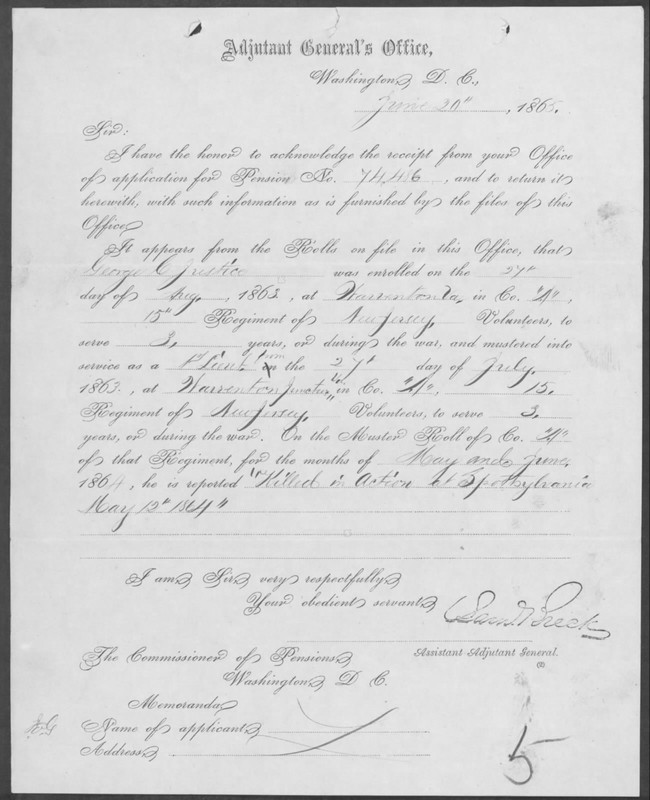 Adjutant General's Office,
Washington, D. C.,
June 20", 1865.
Sir:
I have the honor to acknowledge the receipt from your Office
of application for Pension No. 7446, and to return it
herewith, with such information as is furnished by the files of this
Office.
It appears from the Rolls on file in this Office, that
George C Justice was enrolled on the 27"
day of Aug., 1863, at Warrenton Va, in Co. "A",
15" Regiment of New Jersey, Volunteers, to
serve 3, years, or during the war, and mustered into
service as a 1st Lieut from the 27" day of July,
1863, at Warrenton Junction Va, in Co. "A", 15,
Regiment of New Jersey, Volunteers, to serve 3,
years, or during the war. On the Muster Roll of Co. "A"
of that Regiment, for the months of May and June,
1864, he is reported "Killed in Action at Spotsylvania
May 12" 1864"
I am, Sir, very respectfully,
Your obedient servant,
Saml Breck
Assistant Adjutant General.
The Commissioner of Pensions,
Washington, D. C.
Memoranda
Name of applicant,
Address,
5